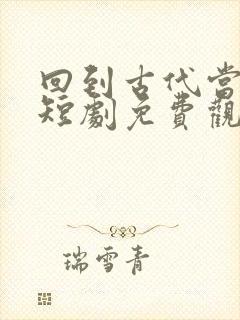 回到古代當
短劇免費觀
瑞雪青